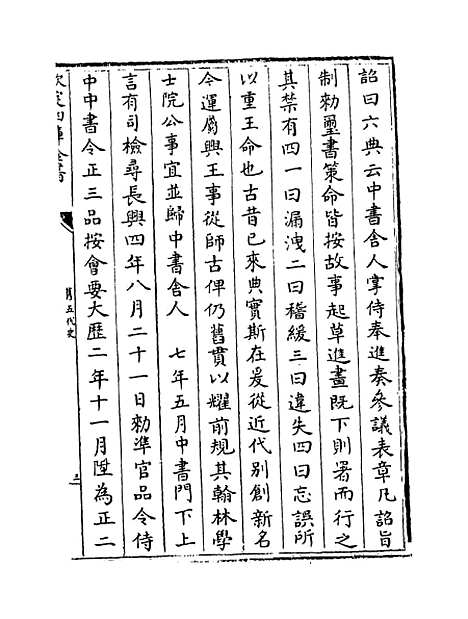 詔曰六典云中書舍人掌侍奉進奏參議表章凡詔旨
制勑璽書策命皆按故事起草進畫既下則署而行之
其禁有四一曰漏洩二曰稽緩三曰違失四曰忘誤所
以重王命也古昔已來典實斯在爰從近代别創新名
今運屬興王事從師古俾仍舊貫以耀前規其翰林學
士院公事宜並歸中書舍人　七年五月中書門下上
言有司檢尋長興四年八月二十一日勑準官品令侍
中中書令正三品按會要大歴二年十一月陞為正二
欽定四庫全書
五代史